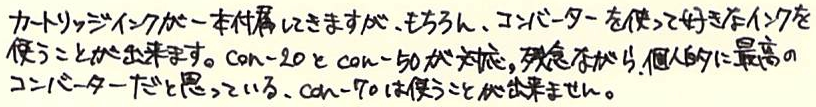 カートリッジインクが一本付属してきますが、もちろん、コンバーターを使って好きなインクを
使うことが出来ます。con-20とcon-50が対応。残念ながら、個人的に最高の
コンバーターだと思っている、con-70は使うことが出来ません。